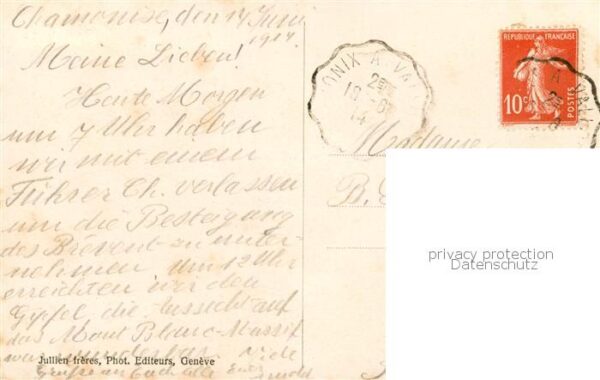 Chamonix, den 14 Juni
1914
Meine Lieben!
Heute Morgen
um 7 Uhr haben
wir mit einem
Führer Ch. verlassen
um die Besteigung
des Brévent zu unter-
nehmen. Um 12 Uhr
erreichten wir den
Gipfel, die Aussicht auf
das Mont Blanc-Massif
war wunderbar. Viele
Grüsse an Euch alle Euer
Jullien frères, Phot. Editeurs, Genève
ONIX A VAL
14
REPUBLIQUE FRANÇAISE
10 c
POSTES
Madame
B.
privacy protection
Datenschutz